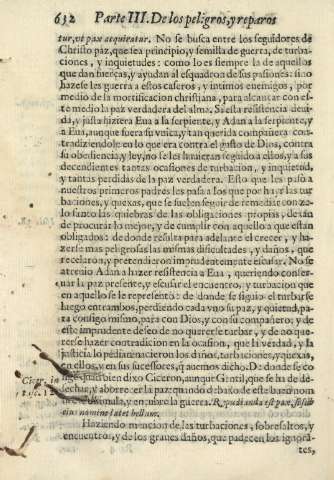 632 Parte III. De los peligros, y reparos
tur, vt pax acquiratur. No se busca entre los seguidores de
Christo paz, que sea principio, y semilla de guerra, de turba-
ciones, y inquietudes: como lo es siempre la de aquellos
que dan fuerças, y ayudan al esquadron de sus passiones: sino
hazese les guerra a estos caseros, y intimos enemigos, por
medio de la mortificacion christiana, para alcançar con es-
te medio la paz verdadera del alma. Si esta resistencia deui-
da, y justa hiziera Eua a la serpiente, y Adan a la serpiente, y
a Eua, aunque fuera su vnica, y tan querida compañera con-
tradiziendole en lo que era contra el gusto de Dios, contra
su obediencia, y ley, no se les huuieran seguido a ellos, y a sus
decendientes tantas ocasiones de turbacion, y inquietud,
y tantas perdidas de la paz verdadera. Esto que les passó a
nuestros primeros padres les passa a los que por huyr las tur
baciones, y quexas, que se suelen seguir de remediar con ze-
lo santo las quiebras de las obligaciones propias, dexan
de procurar lo mejor, y de cumplir con aquello a que están
obligados: de donde resulta para adelante el crecer, y ha-
zerse mas peligrosas las mismas dificultades, y daños, que
recelaron, y pretendieron imprudentemente escusar. No se
atreuio Adan a hazer resistencia a Eua, queriendo conser-
uar la paz presente, y escusar el encuentro, y turbacion que
en aquello se le representó: de donde se siguio el turbarse
luego entrambos, perdiendo cada vno su paz, y quietud, pa-
ra consigo mismo, para con Dios, y con su compañero; y de
este imprudente deseo de no quererse turbar, y de no que-
rerse hazer contradicion en la ocasion, que la verdad, y la
justicia lo pedian nacieron los daños, turbaciones, y quexas,
en ellos, y en sus sucessores, q̃ auemos dicho. De donde se co
lige quan bien dixo Ciceron, aunque Gentil, que se ha de de-
sechar, y aborrecer la paz quando debaxo de este buen nom
bre es mala, y encubre la guerra.
eius nomine latet bellum.
Haziendo mencion de las turbaciones, sobresaltos, y
encuentros, y de los graues daños, que padecen los ignoran-
tes,